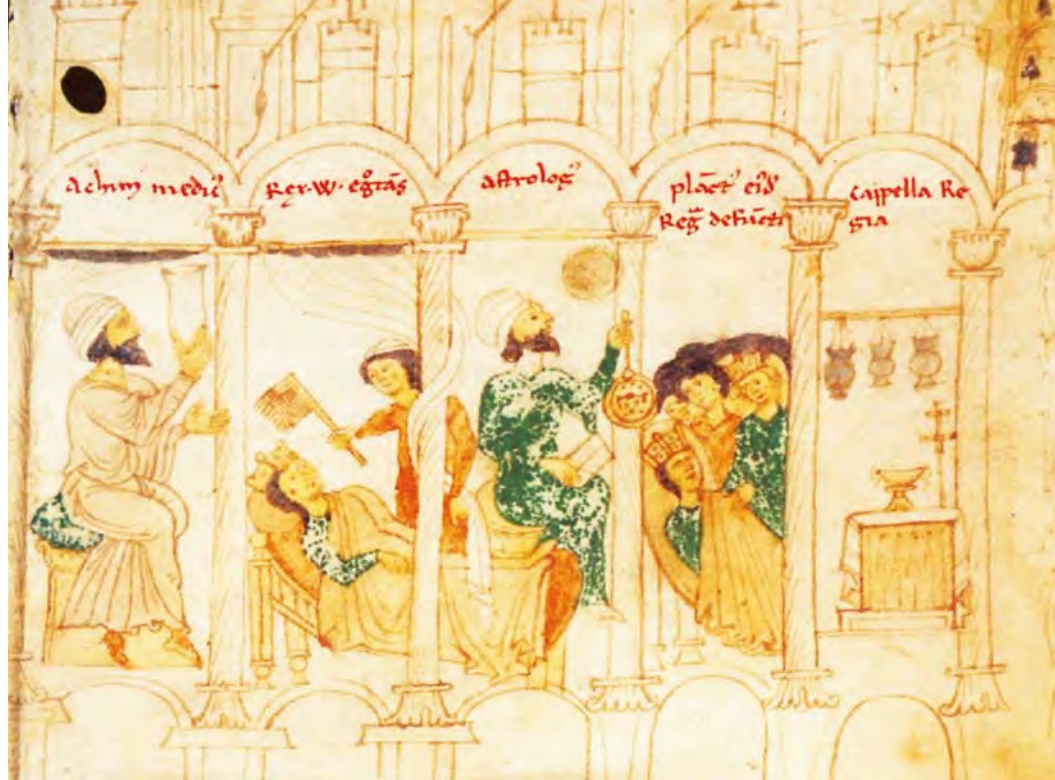 Achim medic᾽
Rex·W· egrotās
astrolog᾽
plāct᾽ eiᵈ
Reg̃ defūcti
Cappella Re
gia